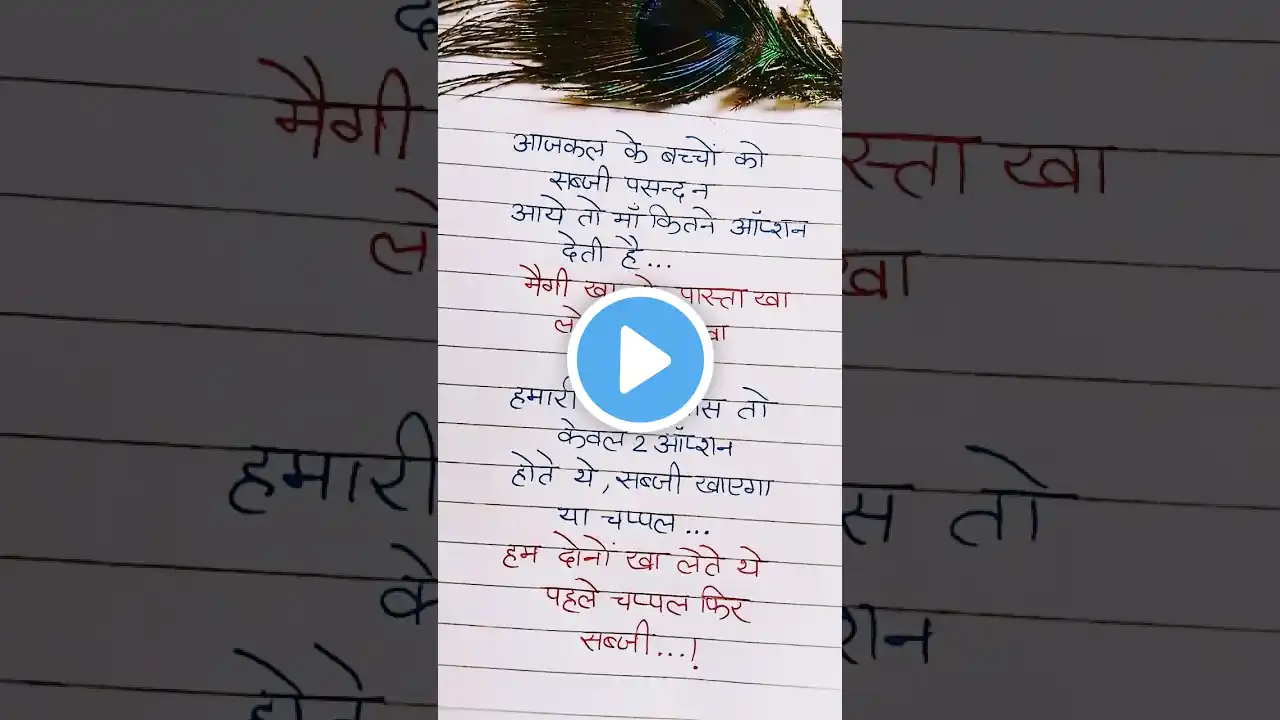 आजकल के बच्चों को
सब्जी पसन्द न
आये तो माँ कितने ऑप्शन
देती है...
मैगी खा पास्ता खा
खा
हमारी तो
केवल 2 ऑप्शन
होते थे, सब्जी खाएगा
या चप्पल...
हम दोनों खा लेते थे
पहले चप्पल फिर
सब्जी...!